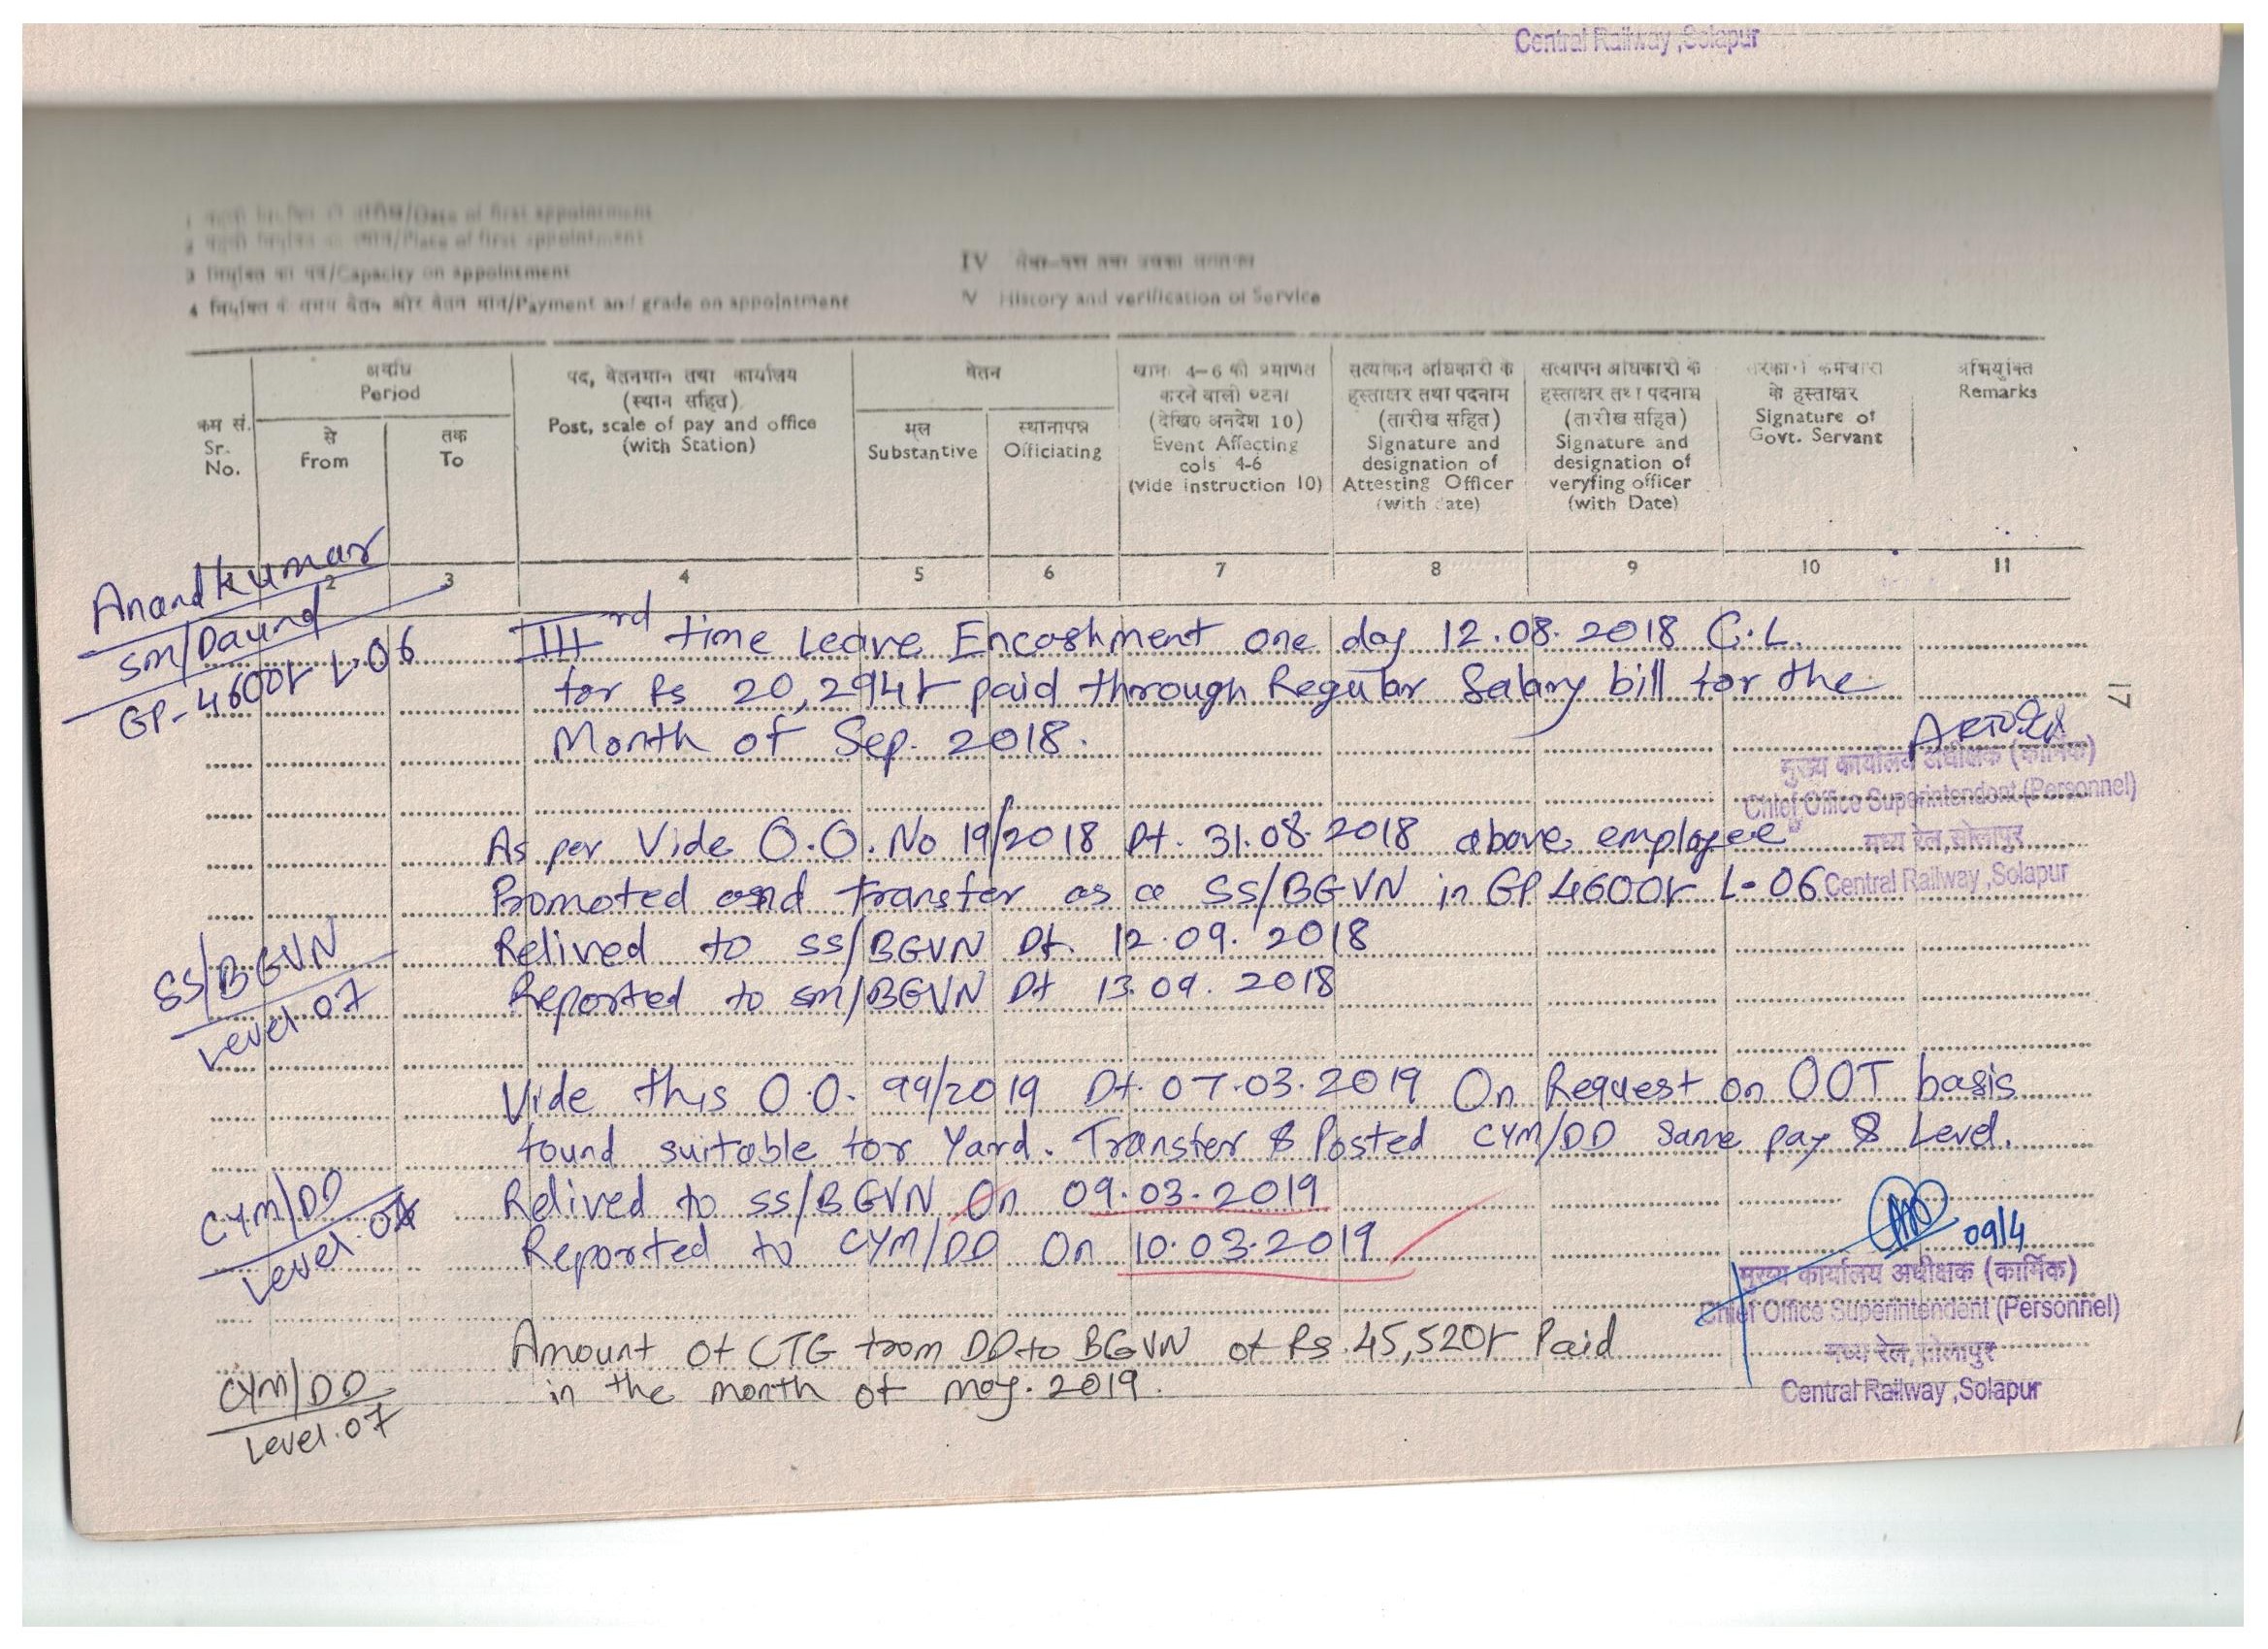 Central Railway, Solapur
/Date of first appointment
/Place of first appointment
3 /Capacity on appointment
IV
4 /Payment and grade on appointment
IV History and verification of Service
क्रम सं.
Sr.
No.
अवधि
Period
से
From
तक
To
पद, वेतनमान तथा कार्यालय
(स्थान सहित)
Post, scale of pay and office
(with Station)
वेतन
मूल
Substantive
स्थानापन्न
Officiating
4-6 की
(देखिए अनदेश 10)
Event Affecting
cols 4-6
(vide instruction 10)
सत्यांकन अधिकारी के
हस्ताक्षर तथा पदनाम
(तारीख सहित)
Signature and
designation of
Attesting Officer
(with date)
सत्यापन अधिकारी के
हस्ताक्षर तथा पदनाम
(तारीख सहित)
Signature and
designation of
veryfing officer
(with Date)
के हस्ताक्षर
Signature of
Govt. Servant
अभियुक्ति
Remarks
2 3 4 5 6 7 8 9 10 11
Anand kumar
SM/Daund
GP-4600/- L-06
IIIrd time Leave Encashment one day 12.08.2018 C.L.
for Rs 20,294/- paid through Regular Salary bill for the
Month of Sep. 2018.
17
मुख्य कार्यालय अधीक्षक (कार्मिक)
Chief Office Superintendent (Personnel)
मध्य रेल, सोलापुर
Central Railway, Solapur
As per Vide O.O. No 19/2018 Dt. 31.08.2018 above employee
Promoted and transfer as a SS/BGVN in GP 4600/- L-06
SS/BGVN
Level.07
Relived to SS/BGVN Dt. 12.09.2018
Reported to SM/BGVN Dt 13.09.2018
Vide this O.O. 99/2019 Dt. 07.03.2019 On Request on OOT basis
found suitable for Yard. Transfer & Posted CYM/DD Same pay & Level.
CYM/DD
Level.07
Relived to SS/BGVN On 09.03.2019
Reported to CYM/DD On 10.03.2019
09/4
मुख्य कार्यालय अधीक्षक (कार्मिक)
Chief Office Superintendent (Personnel)
मध्य रेल, सोलापुर
Central Railway, Solapur
CYM/DD
Level.07
Amount of CTG from DD to BGVN of Rs. 45,520/- Paid
in the month of may. 2019.